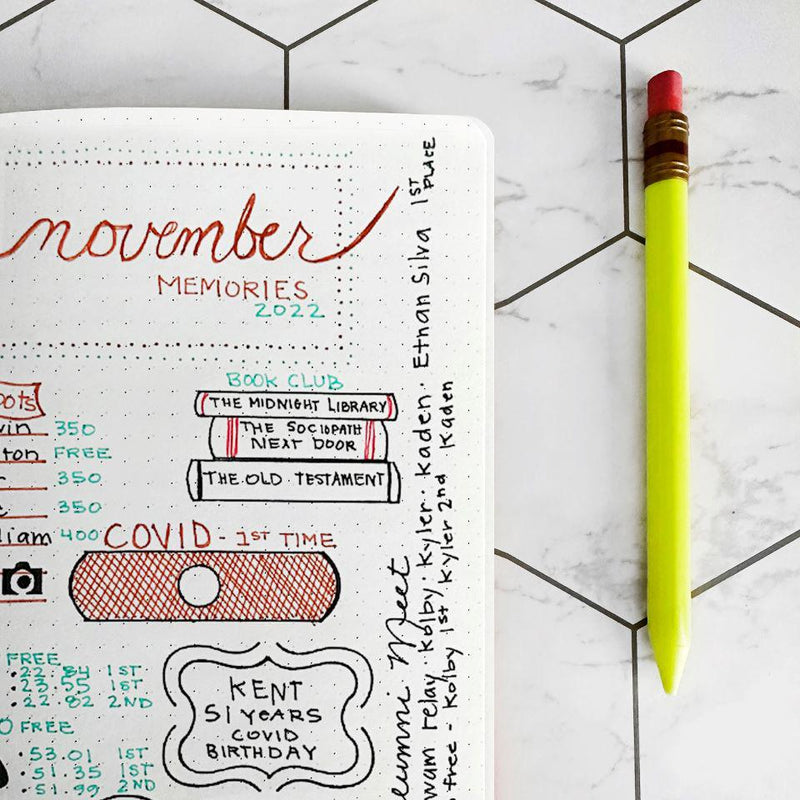 november
MEMORIES
2022
BOOK CLUB
THE MIDNIGHT LIBRARY
THE SOCIOPATH
NEXT DOOR
THE OLD TESTAMENT
350
FREE
350
350
400
COVID - 1ST TIME
FREE
22.84 1ST
23.55 1ST
22.82 2ND
FREE
53.01 1ST
51.35 1ST
51.99 2ND
KENT
51 YEARS
COVID
BIRTHDAY
Meet
relay · Kolby · Kyler · Kaden · Ethan Silva 1ST PLACE
free - Kolby 1st Kyler 2nd Kaden